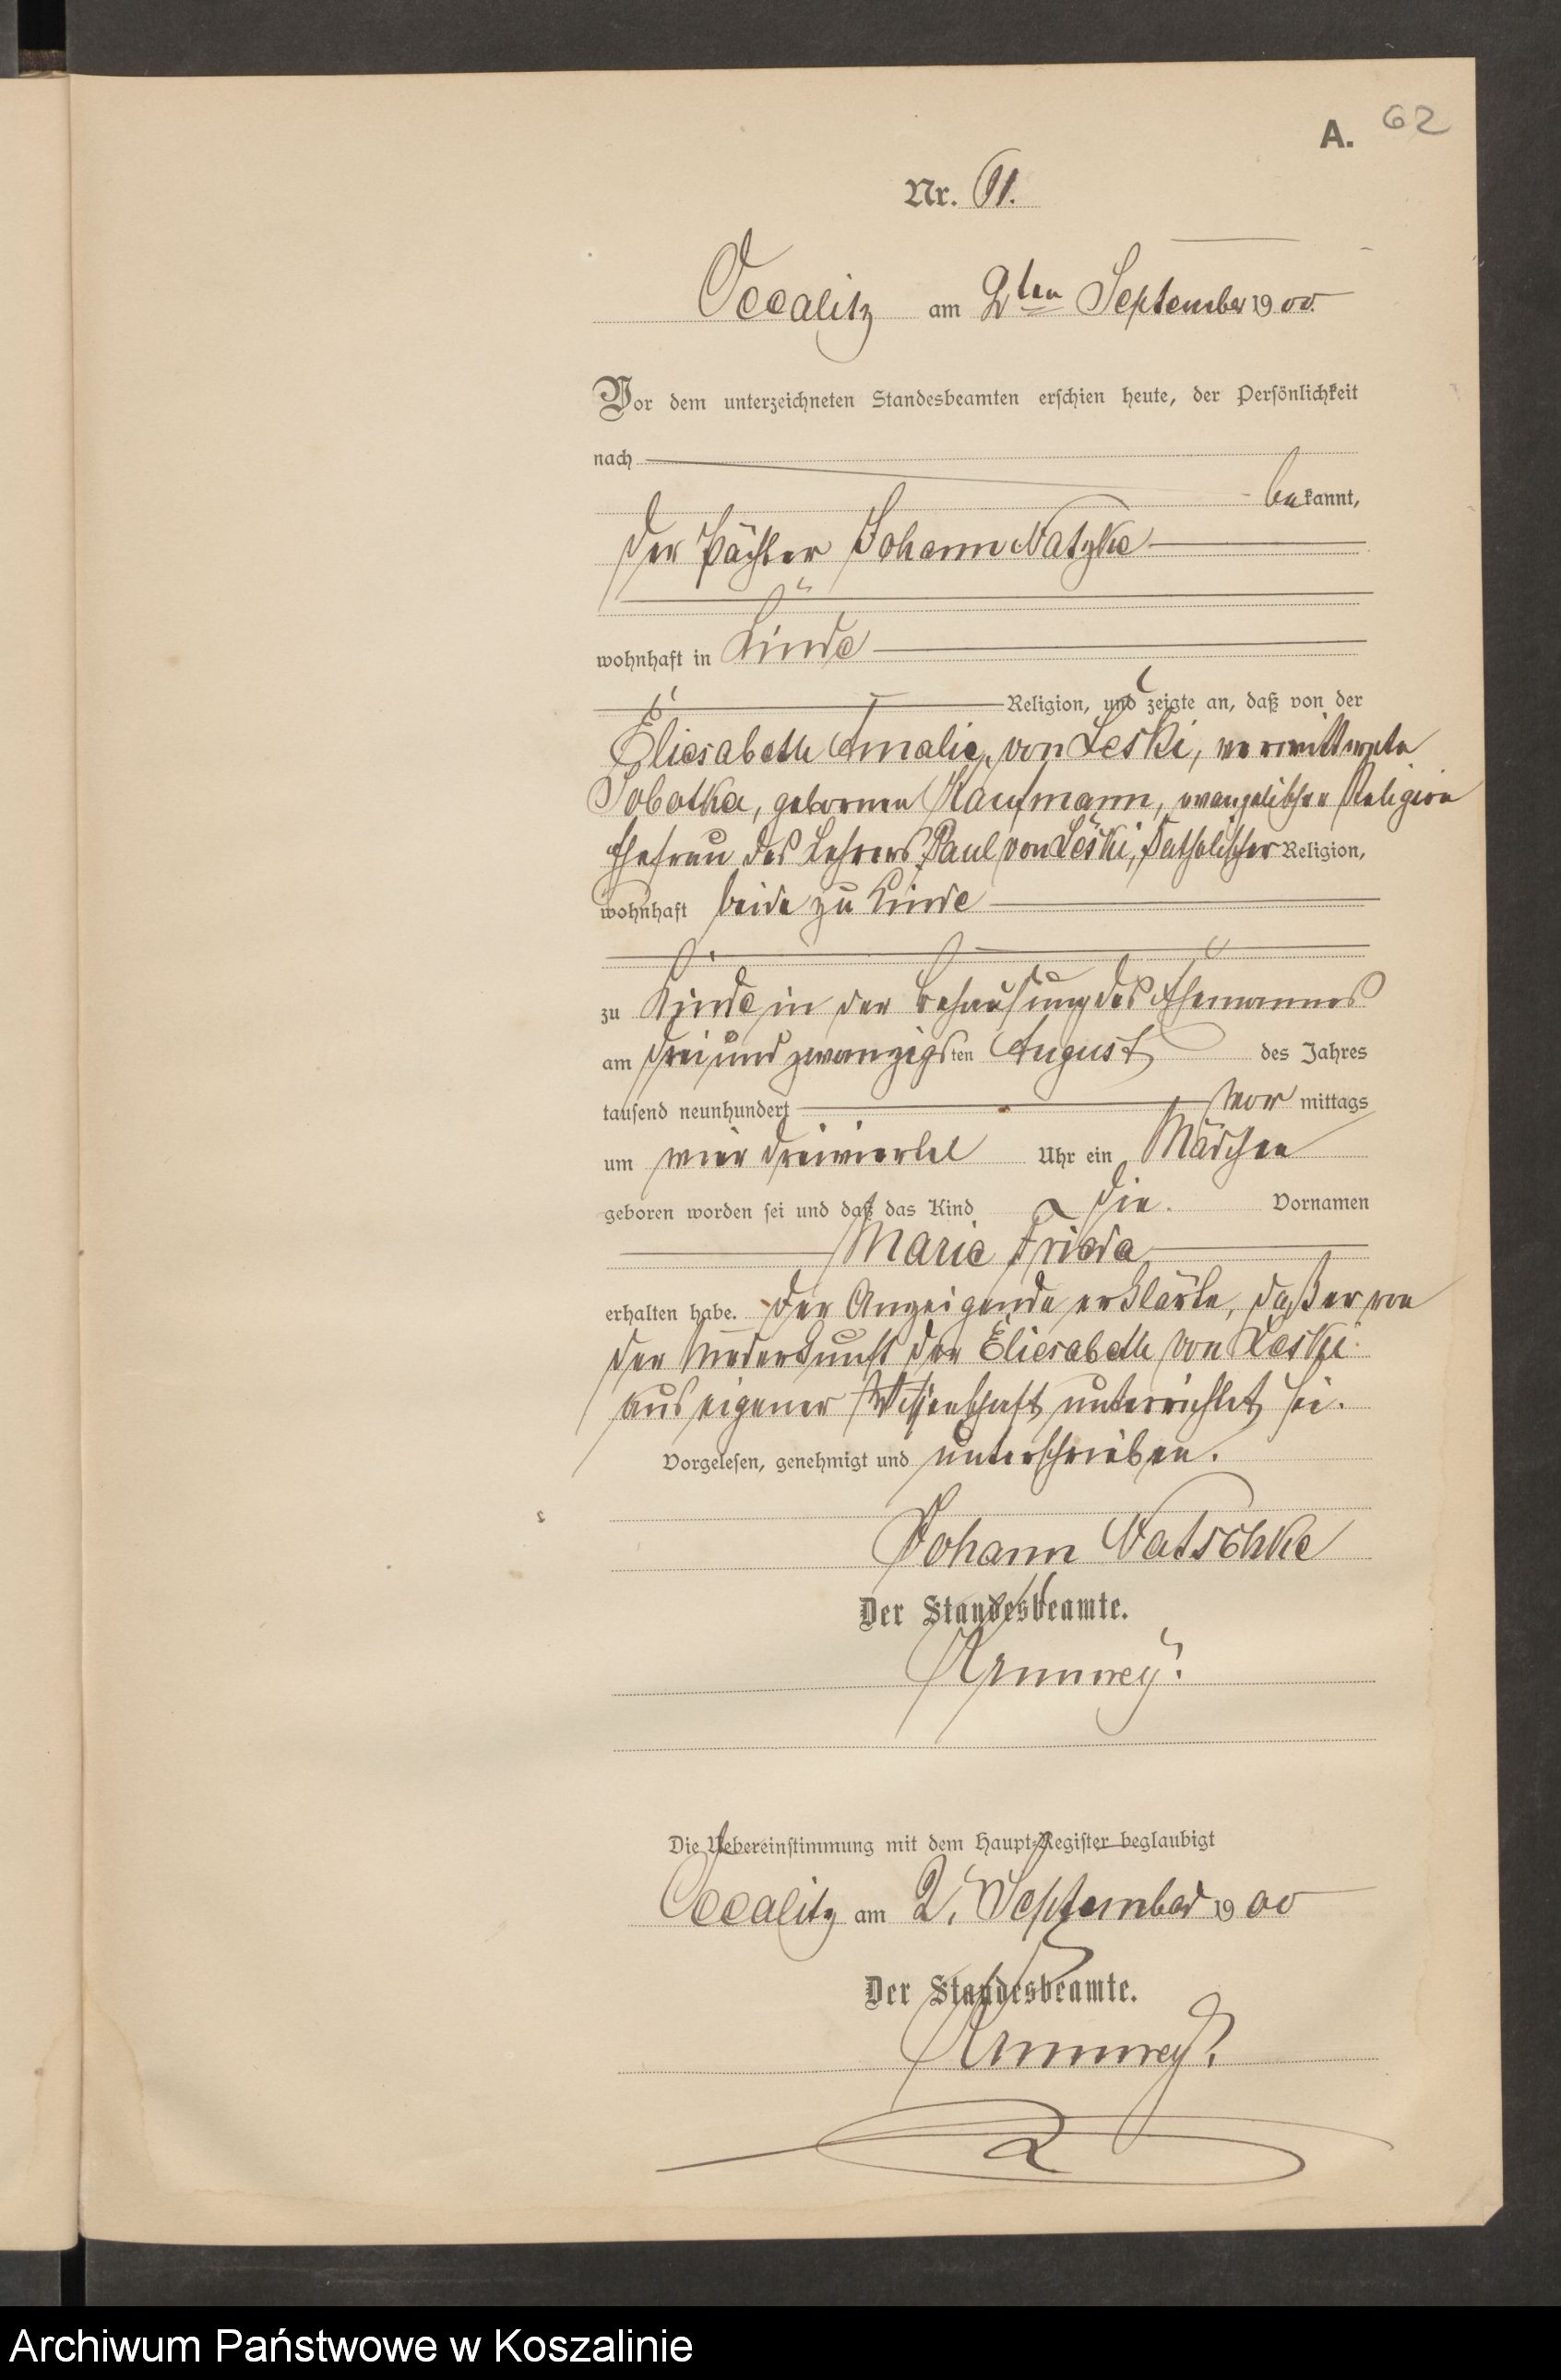 A. 62
Nr. 61.
Occalitz am 2ten September 1900.
Vor dem unterzeichneten Standesbeamten erschien heute, der Persönlichkeit
nach
bekannt,
der Pächter Johann Natzke
wohnhaft in Linde
Religion, und zeigte an, daß von der
Eliesabeth Amalie von Leski, verwittwete
Sobotka, gebornen Kaufmann, evangelischer Religion
Ehefrau des Lehrers Paul von Leski, katholischer Religion,
wohnhaft beide zu Linde
zu Linde in der Behausung des Ehemannes
am drei und zwanzigsten August des Jahres
tausend neunhundert vor mittags
um vier dreiviertel Uhr ein Mädchen
geboren worden sei und daß das Kind die Vornamen
Marie Frieda
erhalten habe. Der Anzeigende erklärte, daß er von
der Niederkunft der Eliesabeth von Leski
aus eigener Wissenschaft unterrichtet sei.
Vorgelesen, genehmigt und unterschrieben.
Johann Natschke
Der Standesbeamte.
Die Uebereinstimmung mit dem Haupt-Register beglaubigt
Occalitz am 2. September 1900
Der Standesbeamte.
Archiwum Państwowe w Koszalinie